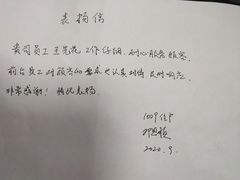 表扬信
贵司员工王 工作仔细、耐心服务顾客.
前台员工对顾客的要求也认真对待 及时响应.
非常感谢! 特此表扬.
1009住户
2020.9.